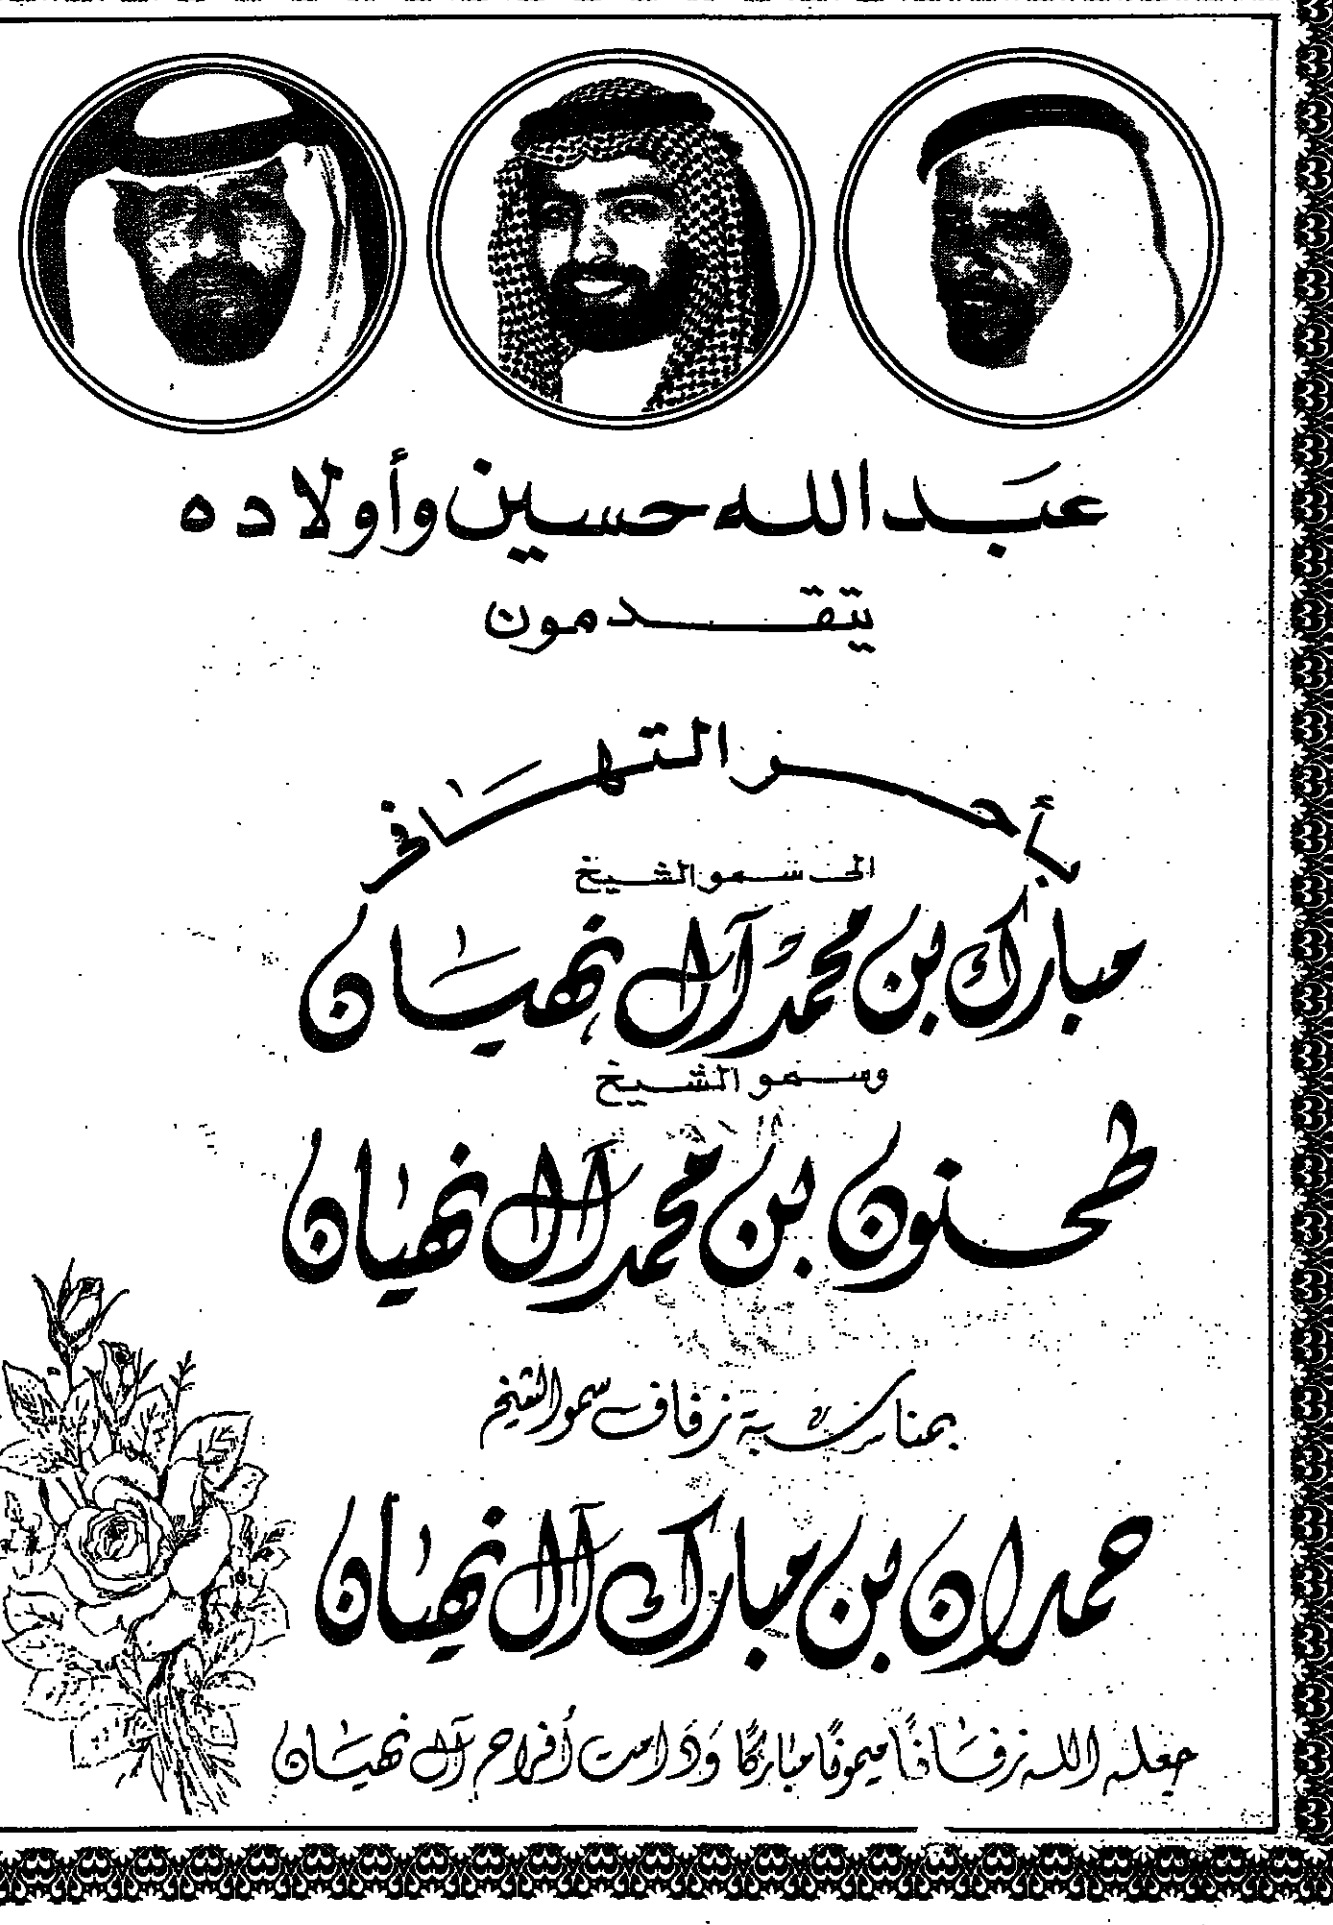 عبد الله حسين وأولاده
يتقدمون
بأحر التهاني
الى سمو الشيخ
مبارك بن محمد آل نهيان
وسمو الشيخ
طحنون بن محمد آل نهيان
بمناسبة زفاف سمو الشيخ
حمدان بن مبارك آل نهيان
جعله الله زفافًا ميمونًا مباركًا وَدَامت أفراح آل نهيان